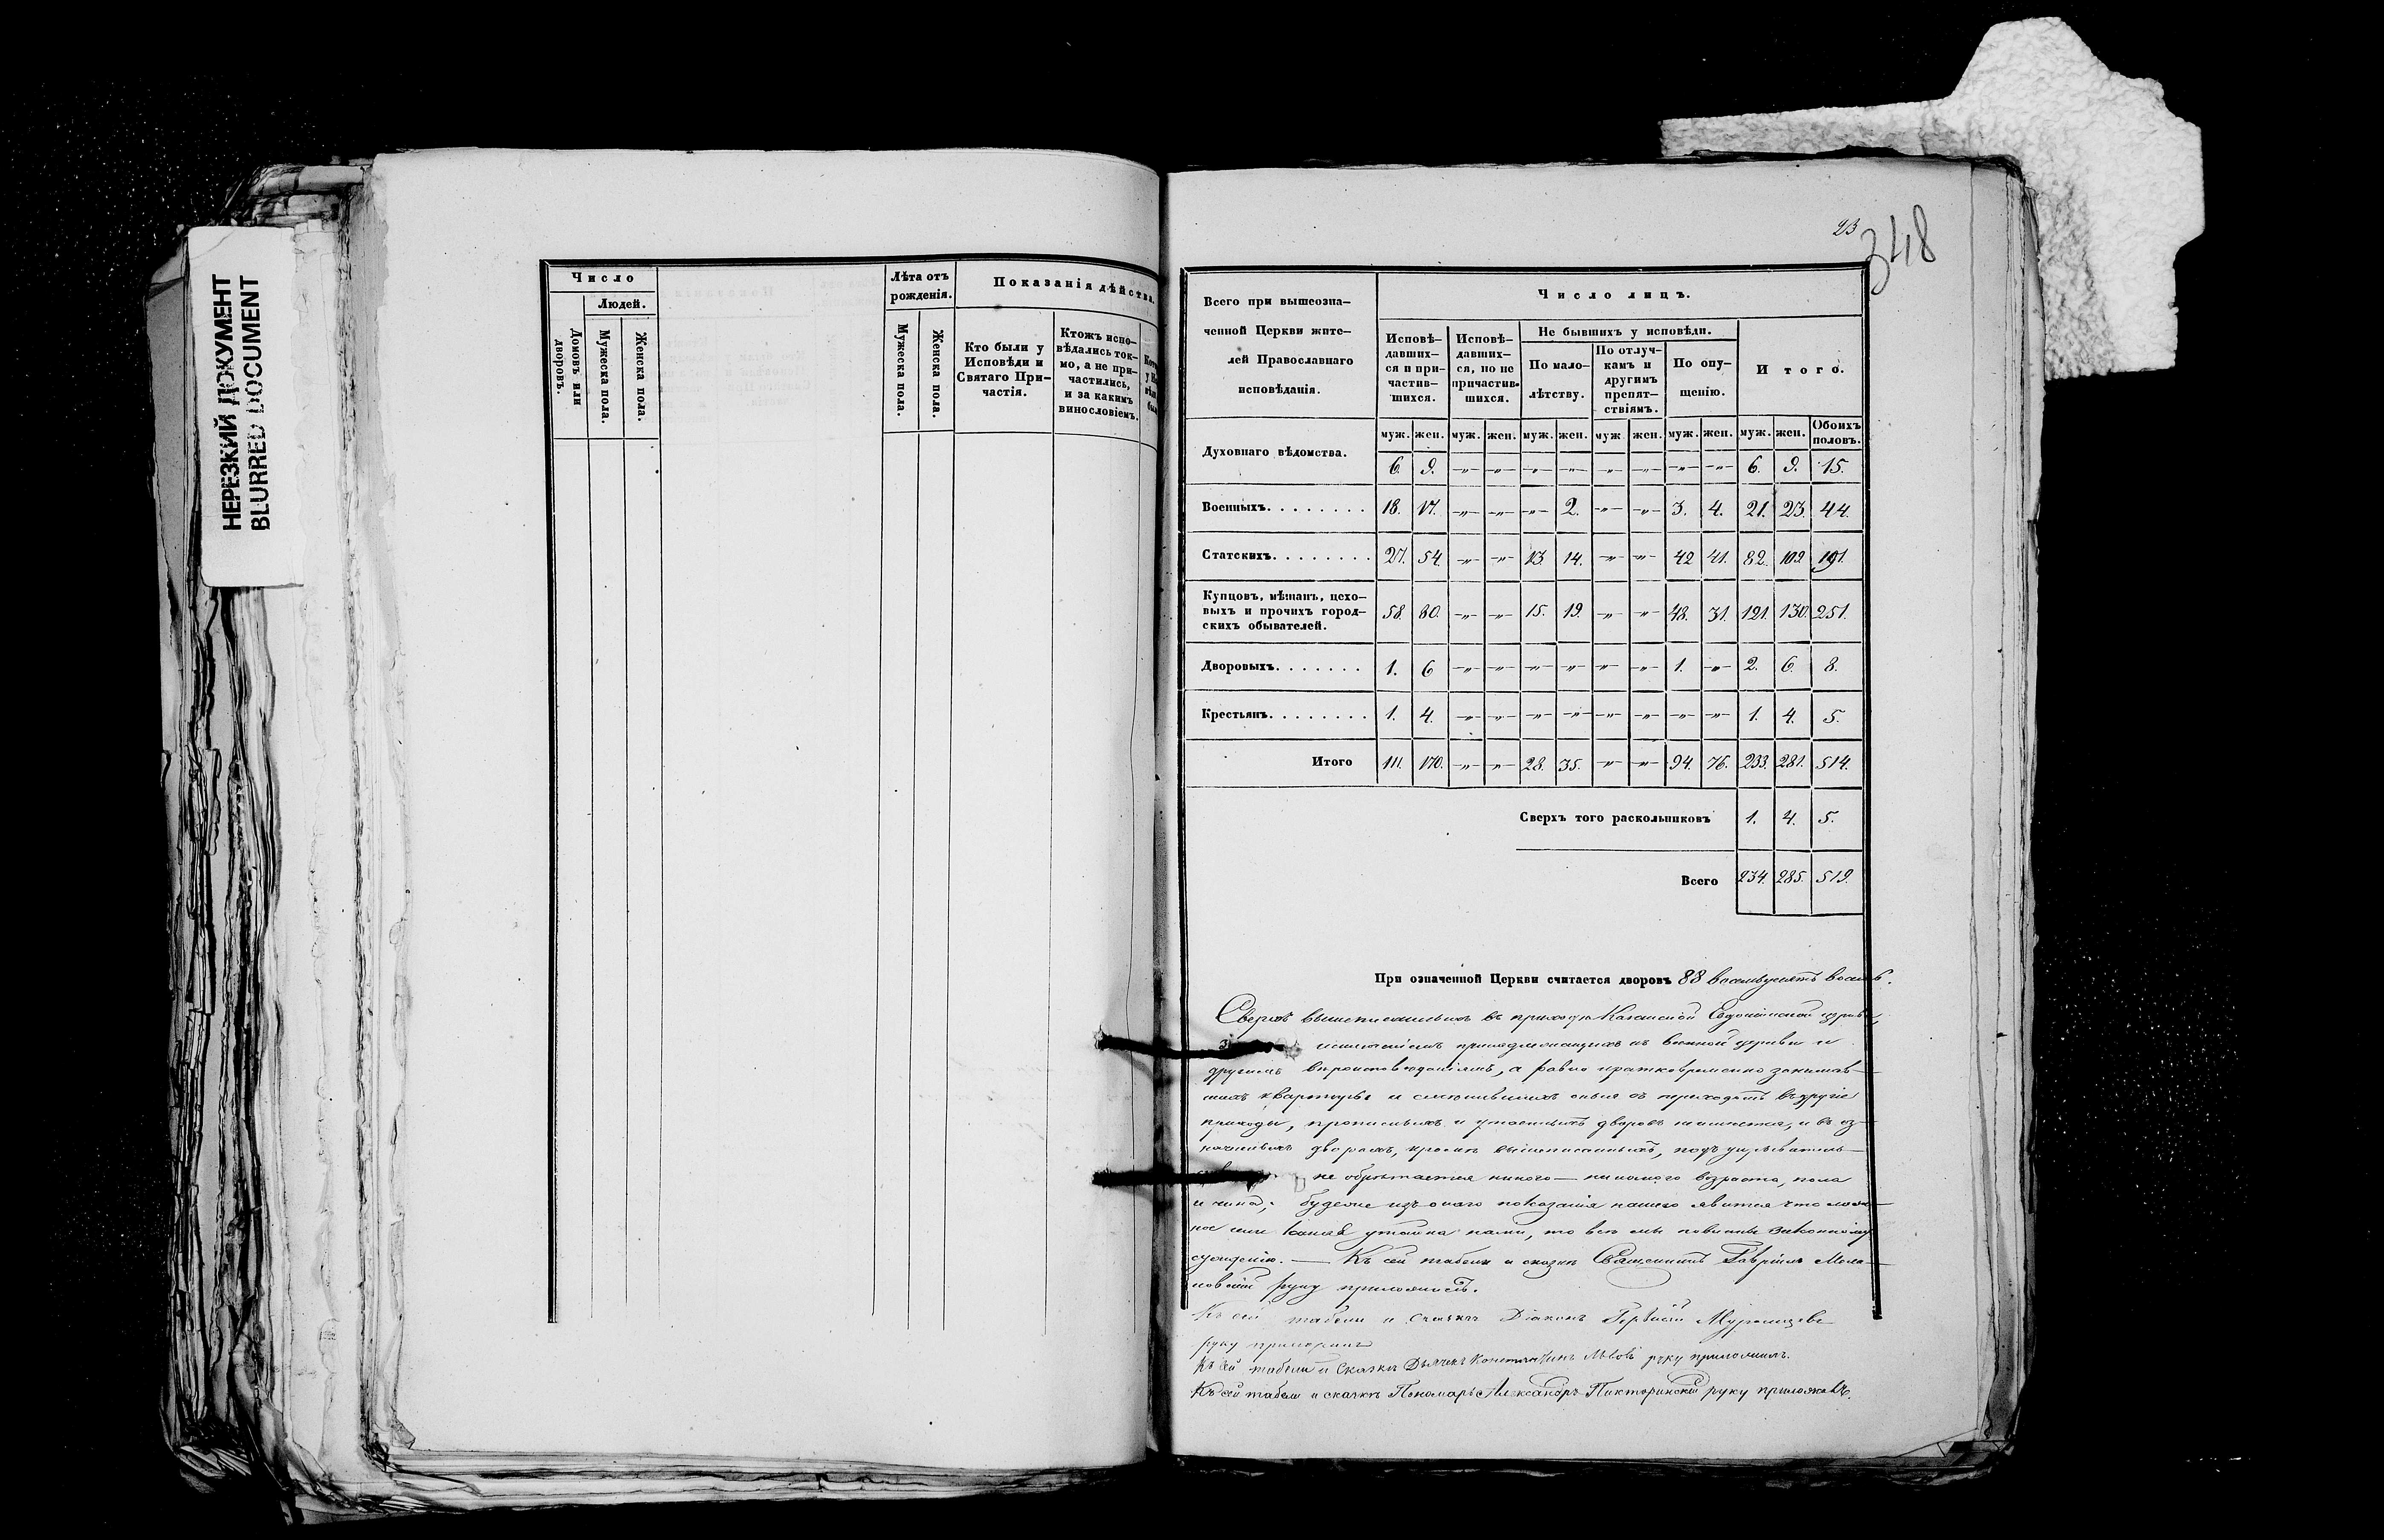 НЕРЕЗКИЙ ДОКУМЕНТ
BLURRED DOCUMENT
Число
Людей.
Домовъ или дворовъ.
Мужеска пола.
Женска пола.
Лѣта отъ рожденія.
Мужеска пола.
Женска пола.
Показанія дѣйства.
Кто были у Исповѣди и Святаго Причастія.
Ктожъ исповѣдались токмо, а не причастились, и за какимъ винословіемъ.
23
348
Всего при вышеозна-
ченной Церкви жите-
лей Православнаго
исповѣданія.
Число лицъ.
Исповѣ-давших-ся и при-частив-шихся.
Исповѣ-давших-ся, но не причастив-шихся.
Не бывшихъ у исповѣди.
По мало-лѣтству.
По отлуч-камъ и другимъ препят-ствіямъ.
По опу-щенію.
Итого.
муж. жен. муж. жен. муж. жен. муж. жен. муж. жен. муж. жен. Обоихъ половъ.
Духовнаго вѣдомства. 6. 9. —„— —„— —„— —„— —„— —„— —„— —„— 6. 9. 15.
Военныхъ. . . . . . . . 18. 17. —„— —„— —„— 2. —„— —„— 3. 4. 21. 23. 44.
Статскихъ. . . . . . . . 27. 54. —„— —„— 13. 14. —„— —„— 42 41. 82. 109. 191.
Купцовъ, мѣщанъ, цехо-
выхъ и прочихъ город-
скихъ обывателей. 58. 80. —„— —„— 15. 19. —„— —„— 48. 31. 121. 130. 251.
Дворовыхъ. . . . . . . 1. 6 —„— —„— —„— —„— —„— —„— 1. —„— 2. 6. 8.
Крестьянъ. . . . . . . . 1. 4. —„— —„— —„— —„— —„— —„— —„— —„— 1. 4. 5.
Итого 111. 170. —„— —„— 28. 35. —„— —„— 94. 76. 233. 281. 514.
Сверхъ того раскольниковъ 1. 4. 5.
Всего 234. 285. 519.
При означенной Церкви считается дворовъ 88 восемьдесятъ восемь.
Сверхъ вышеписанныхъ въ приходѣ Казанской церкви,
исключеніемъ принадлежащихъ къ военной церкви и
другимъ вѣроисповѣданіямъ, а равно кратковременно занимав-
шихъ квартиры и смѣнившихъ оныя съ переходомъ въ другіе
приходы, прописныхъ и утаенныхъ дворовъ не имѣется, и въ оз-
наченныхъ дворахъ, кромѣ вышеписанныхъ,
не обрѣтается никого — никакого возраста, пола
и чина; будеже изъ онаго показанія нашего явится что лож-
ное или какая утайка нами, то всѣ мы повинны законному
сужденію. — Къ сей табели и сказкѣ Священникъ Гавріилъ
руку приложилъ.
Къ сей табели и сказкѣ Діаконъ
руку приложилъ
Къ сей табели и сказкѣ Дьячекъ Константинъ Львовъ руку приложилъ.
Къ сей табели и сказкѣ Пономарь Александръ Пикторинскій руку приложилъ.